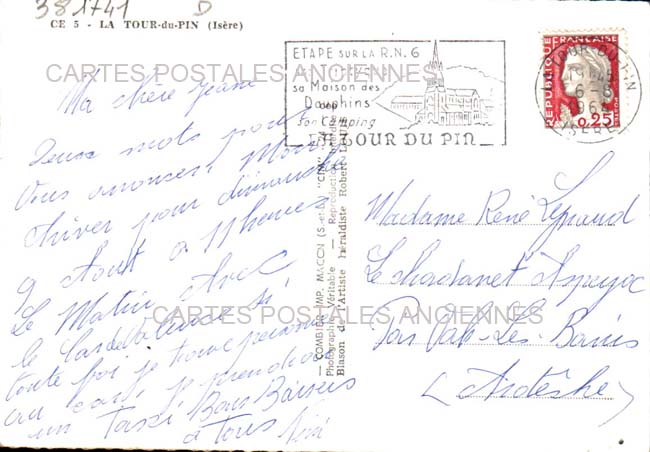 381741 D
CE 5 - LA TOUR-du-PIN (Isère)
ETAPE SUR LA R.N. 6
sa Maison des
Dauphins
son Camping
LA TOUR DU PIN
REPUBLIQUE FRANÇAISE
0,25
LA TOUR-DU-PIN
6-8
ISERE
CARTES POSTALES ANCIENNES
Ma chère
Deux mots pour
Vous annoncer
arriver pour dimanche
9 Aout a 11 heures
Le Matin Avec
le Car de Valence si
toute foi je trouve personne
au car je prendrai
un Taxi Bons Baisers
a Tous
COMBIER IMP. MACON (S.-et-L.) "CIM"
Photographie Véritable — Reproduction
Blason de l'Artiste héraldiste Robert
Madame René
Le
Par Vals-Les-Bains
(Ardèche)
CARTES POSTALES ANCIENNES